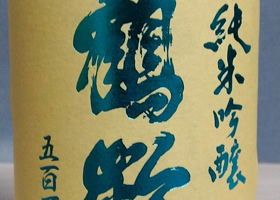 純米吟醸
鶴齢
五百